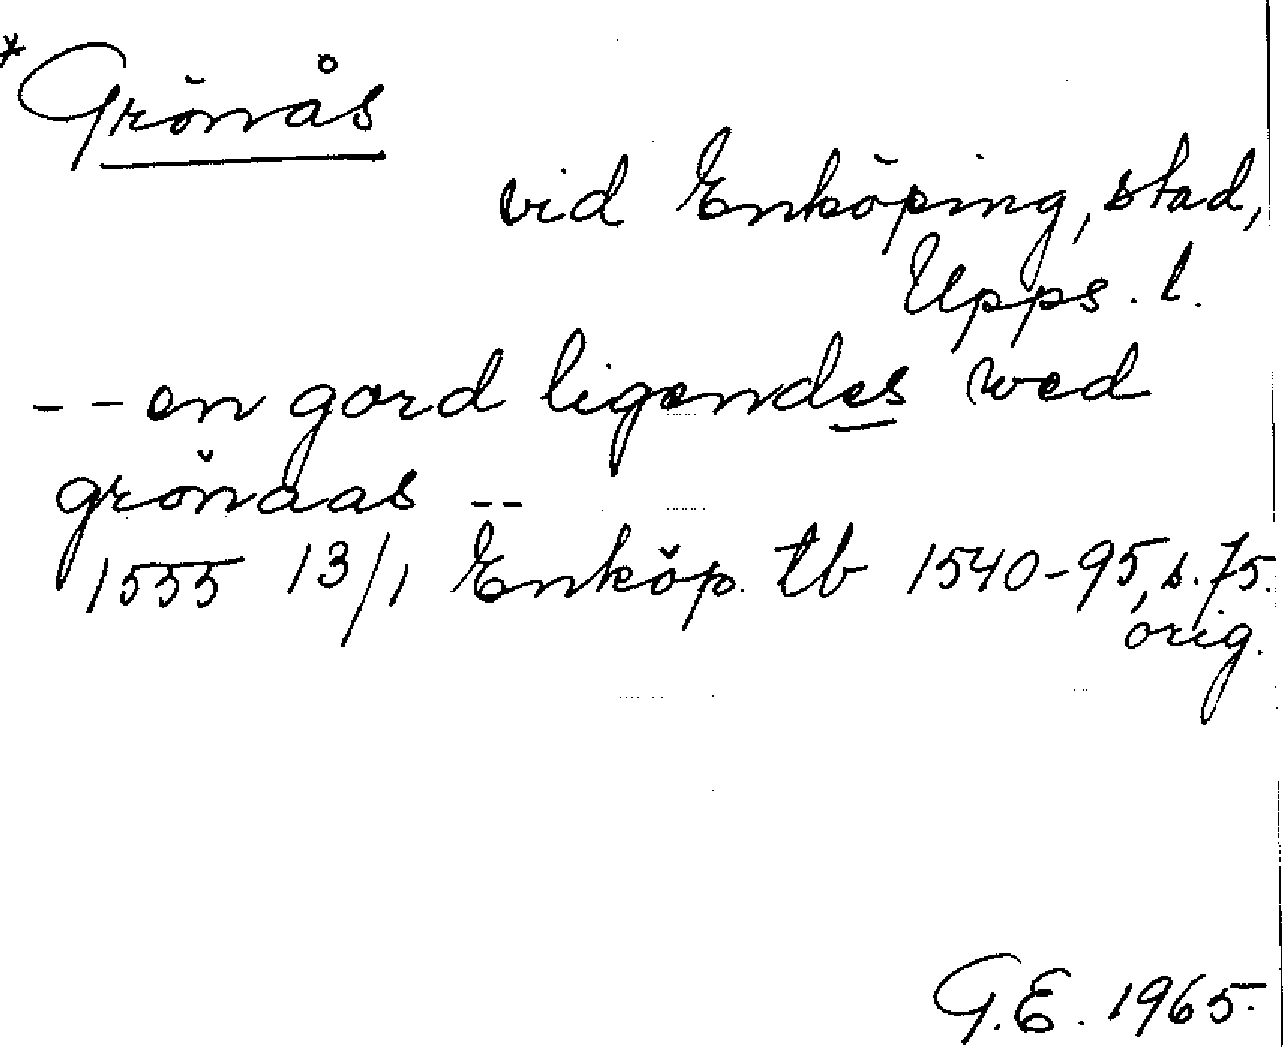 *Grönås
vid Enköping, stad,
Upps. l.
-- en gord ligendes wed
grönaas --
1555 13/1 Enköp. tb 1540-95, s. 75.
orig.
G.E. 1965.